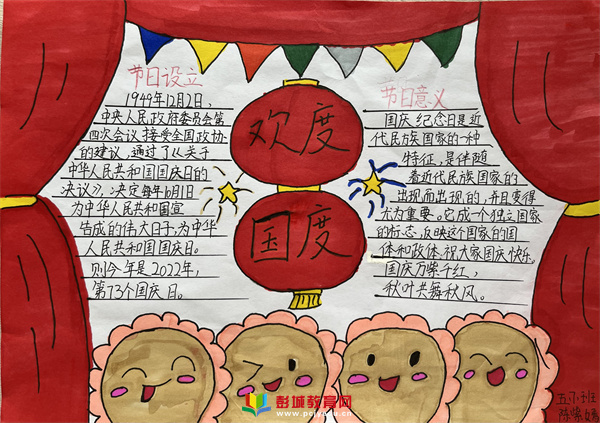 节日设立
1949年12月2日,
中央人民政府委员会第
四次会议接受全国政协
的建议,通过了《关于
中华人民共和国国庆日的
决议》,决定每年10月1日
为中华人民共和国宣
告成的伟大日子,为中华
人民共和国国庆日。
则今年是2022年,
第73个国庆日。
欢度
国度
节日意义
国庆纪念日是近
代民族国家的一种
特征,是伴随
着近代民族国家的
出现而出现的,并且变得
尤为重要。它成一个独立国家
的标志,反映这个国家的国
体和政体,祝大家国庆快乐。
国庆万紫千红,
秋叶共舞秋风。
彭城教育网
www.pcjyedu.cn